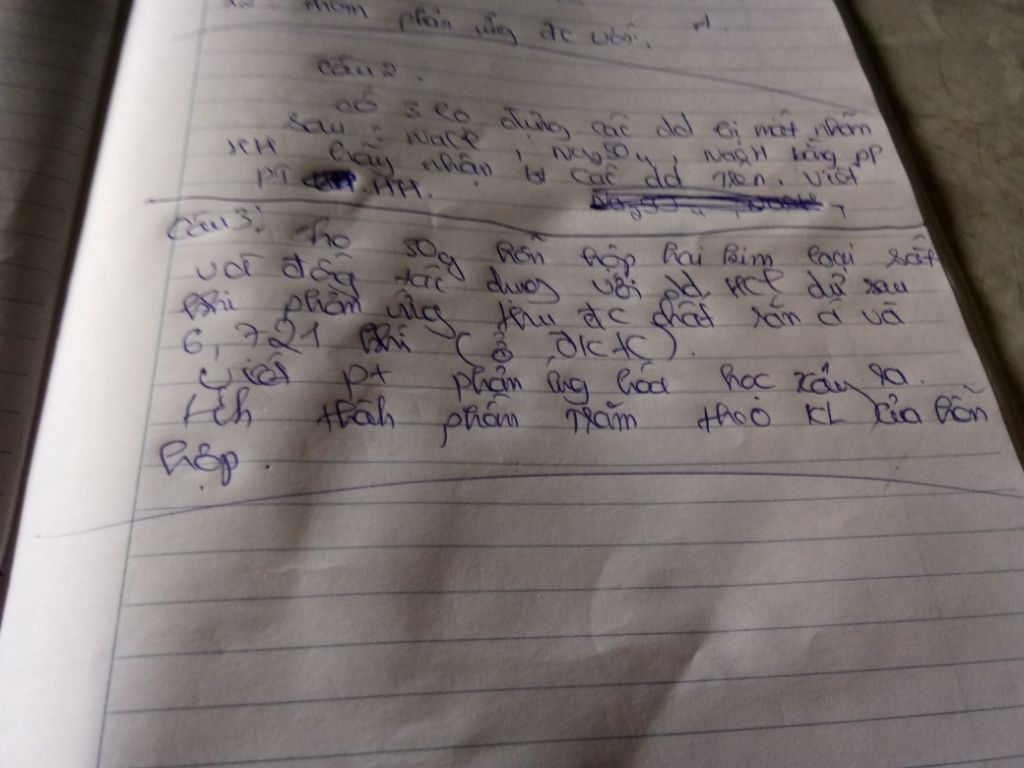 phản ứng đc với.
Câu 2.
có 3 lọ đựng các dd bị mất nhãn
sau: NaCl, Na2SO4, NaOH bằng pp
HH hãy nhận các dd trên. Viết
PT HH.
Câu 3: Cho 30g hỗn hợp hai kim loại sắt
và đồng tác dụng với dd HCl dư sau
khi phản ứng thu đc chất rắn A và
6,72l khí (ở ĐKTC).
Viết pt phản ứng hóa học xảy ra.
tính thành phần trăm theo KL của hỗn
hợp.